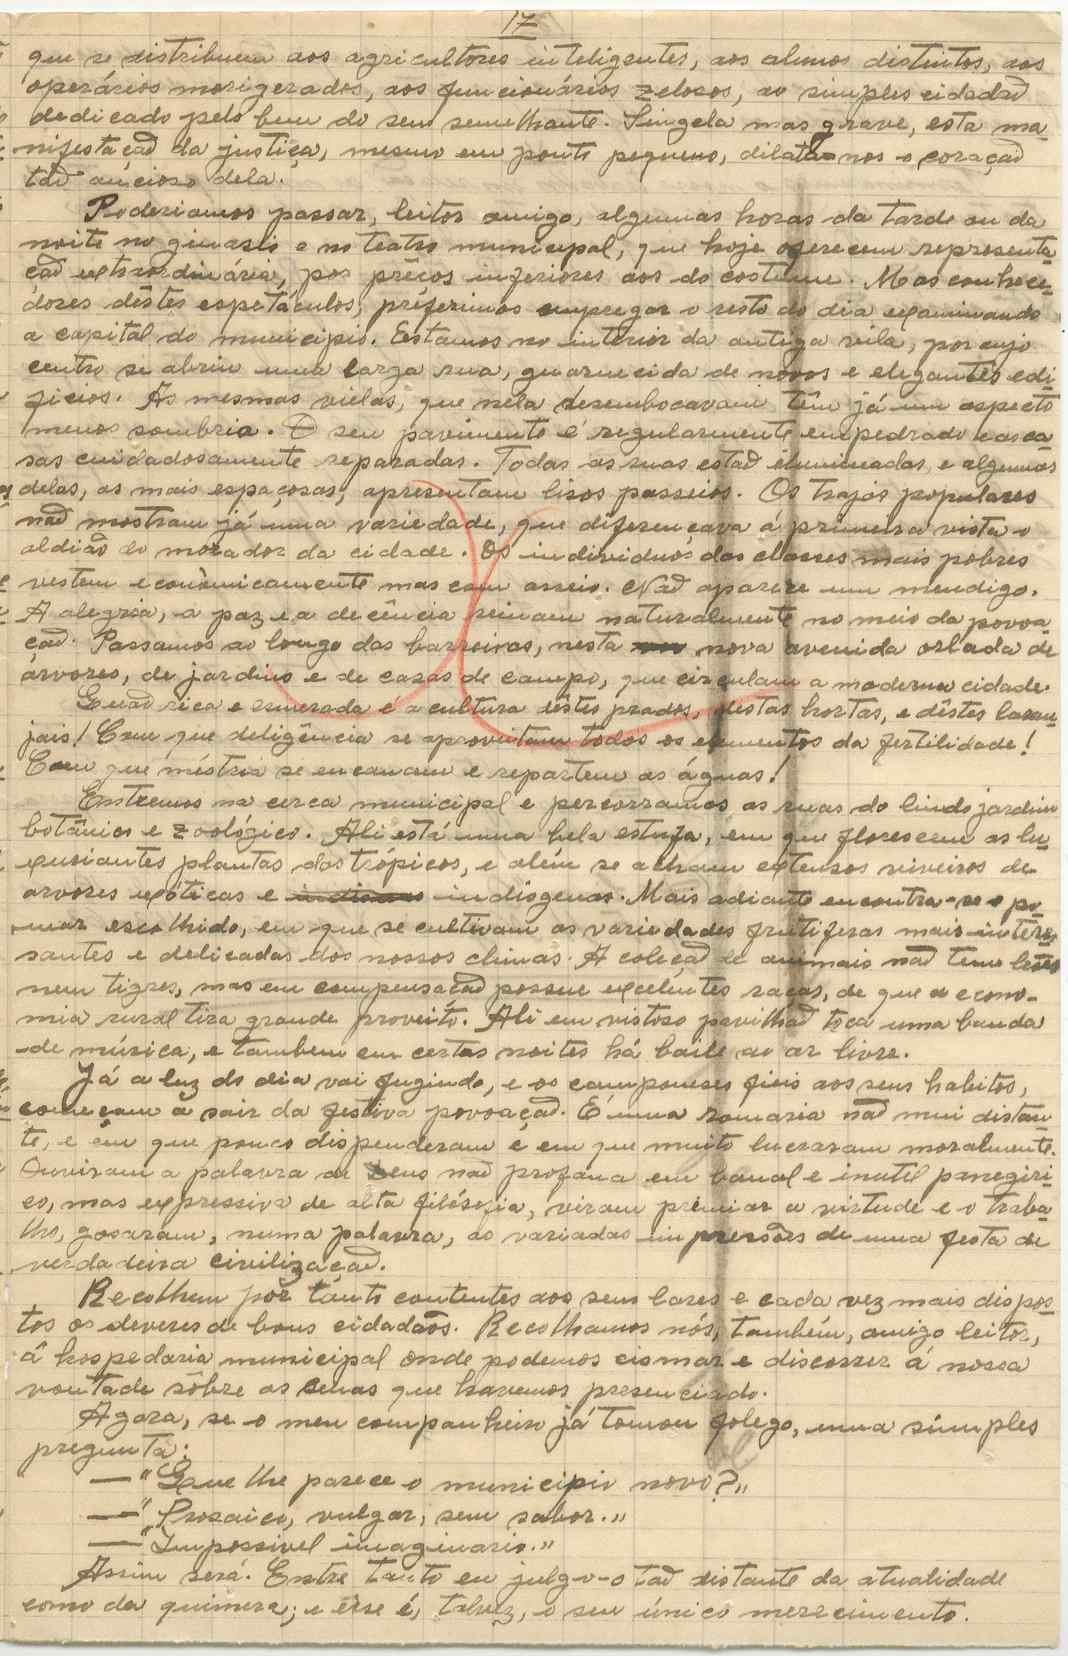 17
que se distribuem aos agricultores inteligentes, aos alunos distintos, aos
operários morigerados, aos funcionários zelosos, ao simples cidadão
dedicado pelo bem do seu semelhante. Singela mas grave, esta ma-
nifestação da justiça, mesmo em ponto pequeno, dilata-nos o coração
tão ancioso dela.
Poderiamos passar, leitor amigo, algumas horas da tarde ou da
noite no ginasio e no teatro municipal, que hoje oferecem representa-
ção extraordinária, por prêços inferiores aos do costume. Mas conhece-
dores dêstes espetáculos, preferimos empregar o resto do dia examinando
a capital do municipio. Estamos no interior da antiga vila, por cujo
centro se abriu uma larga rua, guarnecida de novos e elegantes edi-
ficios. As mesmas vielas, que nela desembocavam têm já um aspecto
menos sombrio. O seu pavimento é regularmente empedrado e as ca-
sas cuidadosamente reparadas. Todas as ruas estão iluminadas, e algumas
delas, as mais espaçosas, apresentam lisos passeios. Os trajos populares
não mostram já uma variedade, que diferençava á primeira vista o
aldião do morador da cidade. Os individuos das classes mais pobres
vestem econòmicamente mas com asseio. Não aparece um mendigo.
A alegria, a paz e a decência reinam naturalmente no meio da povoa-
ção. Passamos ao longo das barreiras, nesta nova avenida orlada de
árvores, de jardins e de casas de campo, que circulam a moderna cidade.
Quão rica e esmerada é a cultura dêstes prados, destas hortas, e dêstes laran-
jais! Com que deligência se aproveitam todos os elementos da fertilidade!
Com que méstria se encanam e repartem as águas!
Entremos na cerca municipal e percorramos as ruas do lindo jardim
botânico e zoológico. Ali está uma bela estufa, em que florescem as lu-
xuriantes plantas dos trópicos, e além se acham extensos viveiros de
arvores exóticas e indígenas. Mais adiante encontra-se o po-
mar escolhido, em que se cultivam as variedades frutiferas mais interes-
santes e delicadas dos nossos climas. A coleção de animais não tem leões
nem tigres, mas em compensação possue excelentes raças, de que a econo-
mia rural tira grande proveito. Ali em vistoso pavilhão toca uma banda
de música, e tambem em certas noites há baile ao ar livre.
Já a luz do dia vai fugindo, e os camponeses fieis aos seus habitos,
começam a sair da festiva povoação. É uma romaria não mui distan-
te, e em que pouco dispenderam e em que muito lucraram moralmente.
Ouviram a palavra de Deus não profana em banal e inutil panegiri-
co, mas expressiva de alta filósofia, viram premiar a virtude e o traba-
lho, gosaram, numa palavra, as variadas impressões de uma festa de
verdadeira civilização.
Recolhem por tanto contentes aos seus lares e cada vez mais dispos-
tos os deveres de bons cidadãos. Recolhamos nós, também, amigo leitor,
á hospedaria municipal onde podemos cismar e discorrer á nossa
vontade sôbre as cenas que havemos presenciado.
Agora, se o meu companheiro já tomou folego, uma símples
pregunta:
—"Que lhe parece o municipio novo?"
—"Prosaico, vulgar, sem sabor."
—"Impossivel imaginario."
Assim será. Entre tanto eu julgo-o tão distante da atualidade
como da quimera; e êsse é, talvez, o seu único merecimento.